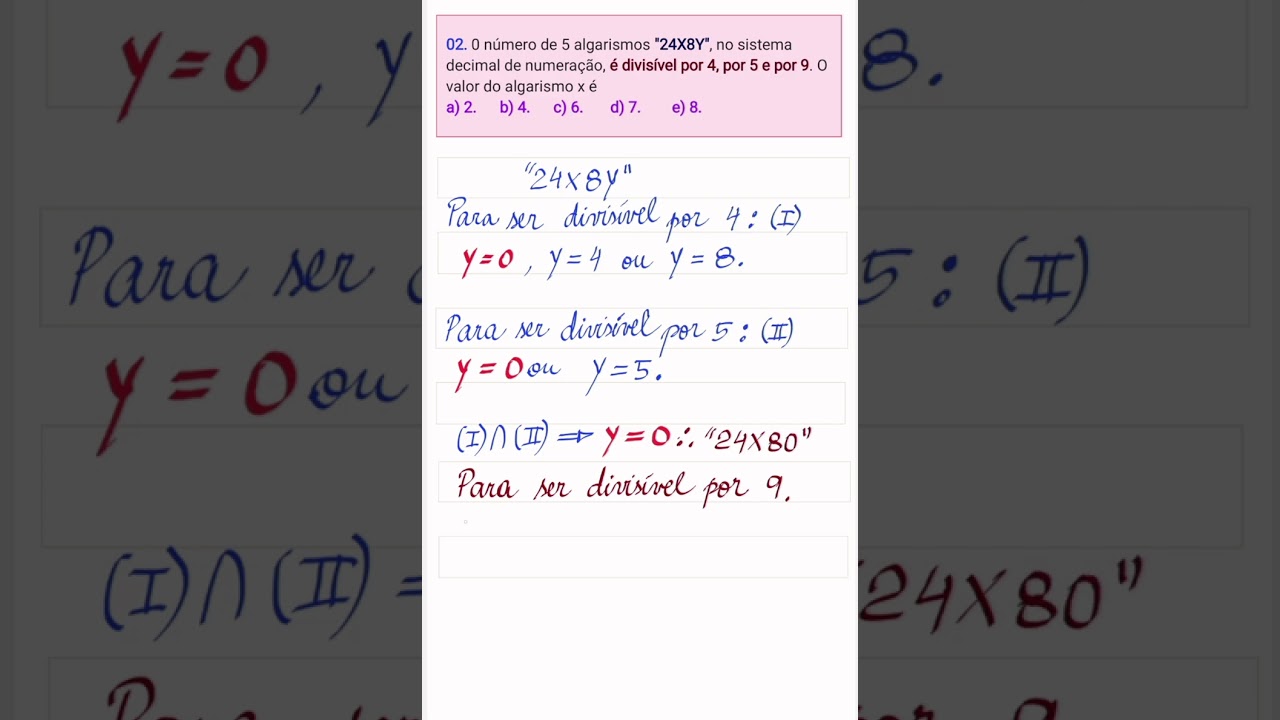 02. O número de 5 algarismos "24X8Y", no sistema
decimal de numeração, é divisível por 4, por 5 e por 9. O
valor do algarismo x é
a) 2. b) 4. c) 6. d) 7. e) 8.
"24X8Y"
Para ser divisível por 4: (I)
y=0, y=4 ou y=8.
Para ser divisível por 5: (II)
y=0 ou y=5.
(I)∩(II) ⇒ y=0 ∴ "24X80"
Para ser divisível por 9.
y=0, y
8.
Para ser
5: (II)
y=0 ou
(I)∩(II) =
"24X80"